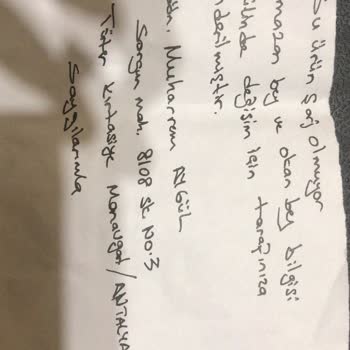 Su ürün şarj olmuyor
mazan bey ve okan bey bilgisi
ilinde değişim için tarafınıza
nderilmiştir.
Muharrem AYGÜL
Sorgun mah. 8108 Sk. No:3
Tüter Kırtasiye Manavgat / ANTALYA
Saygılarımla